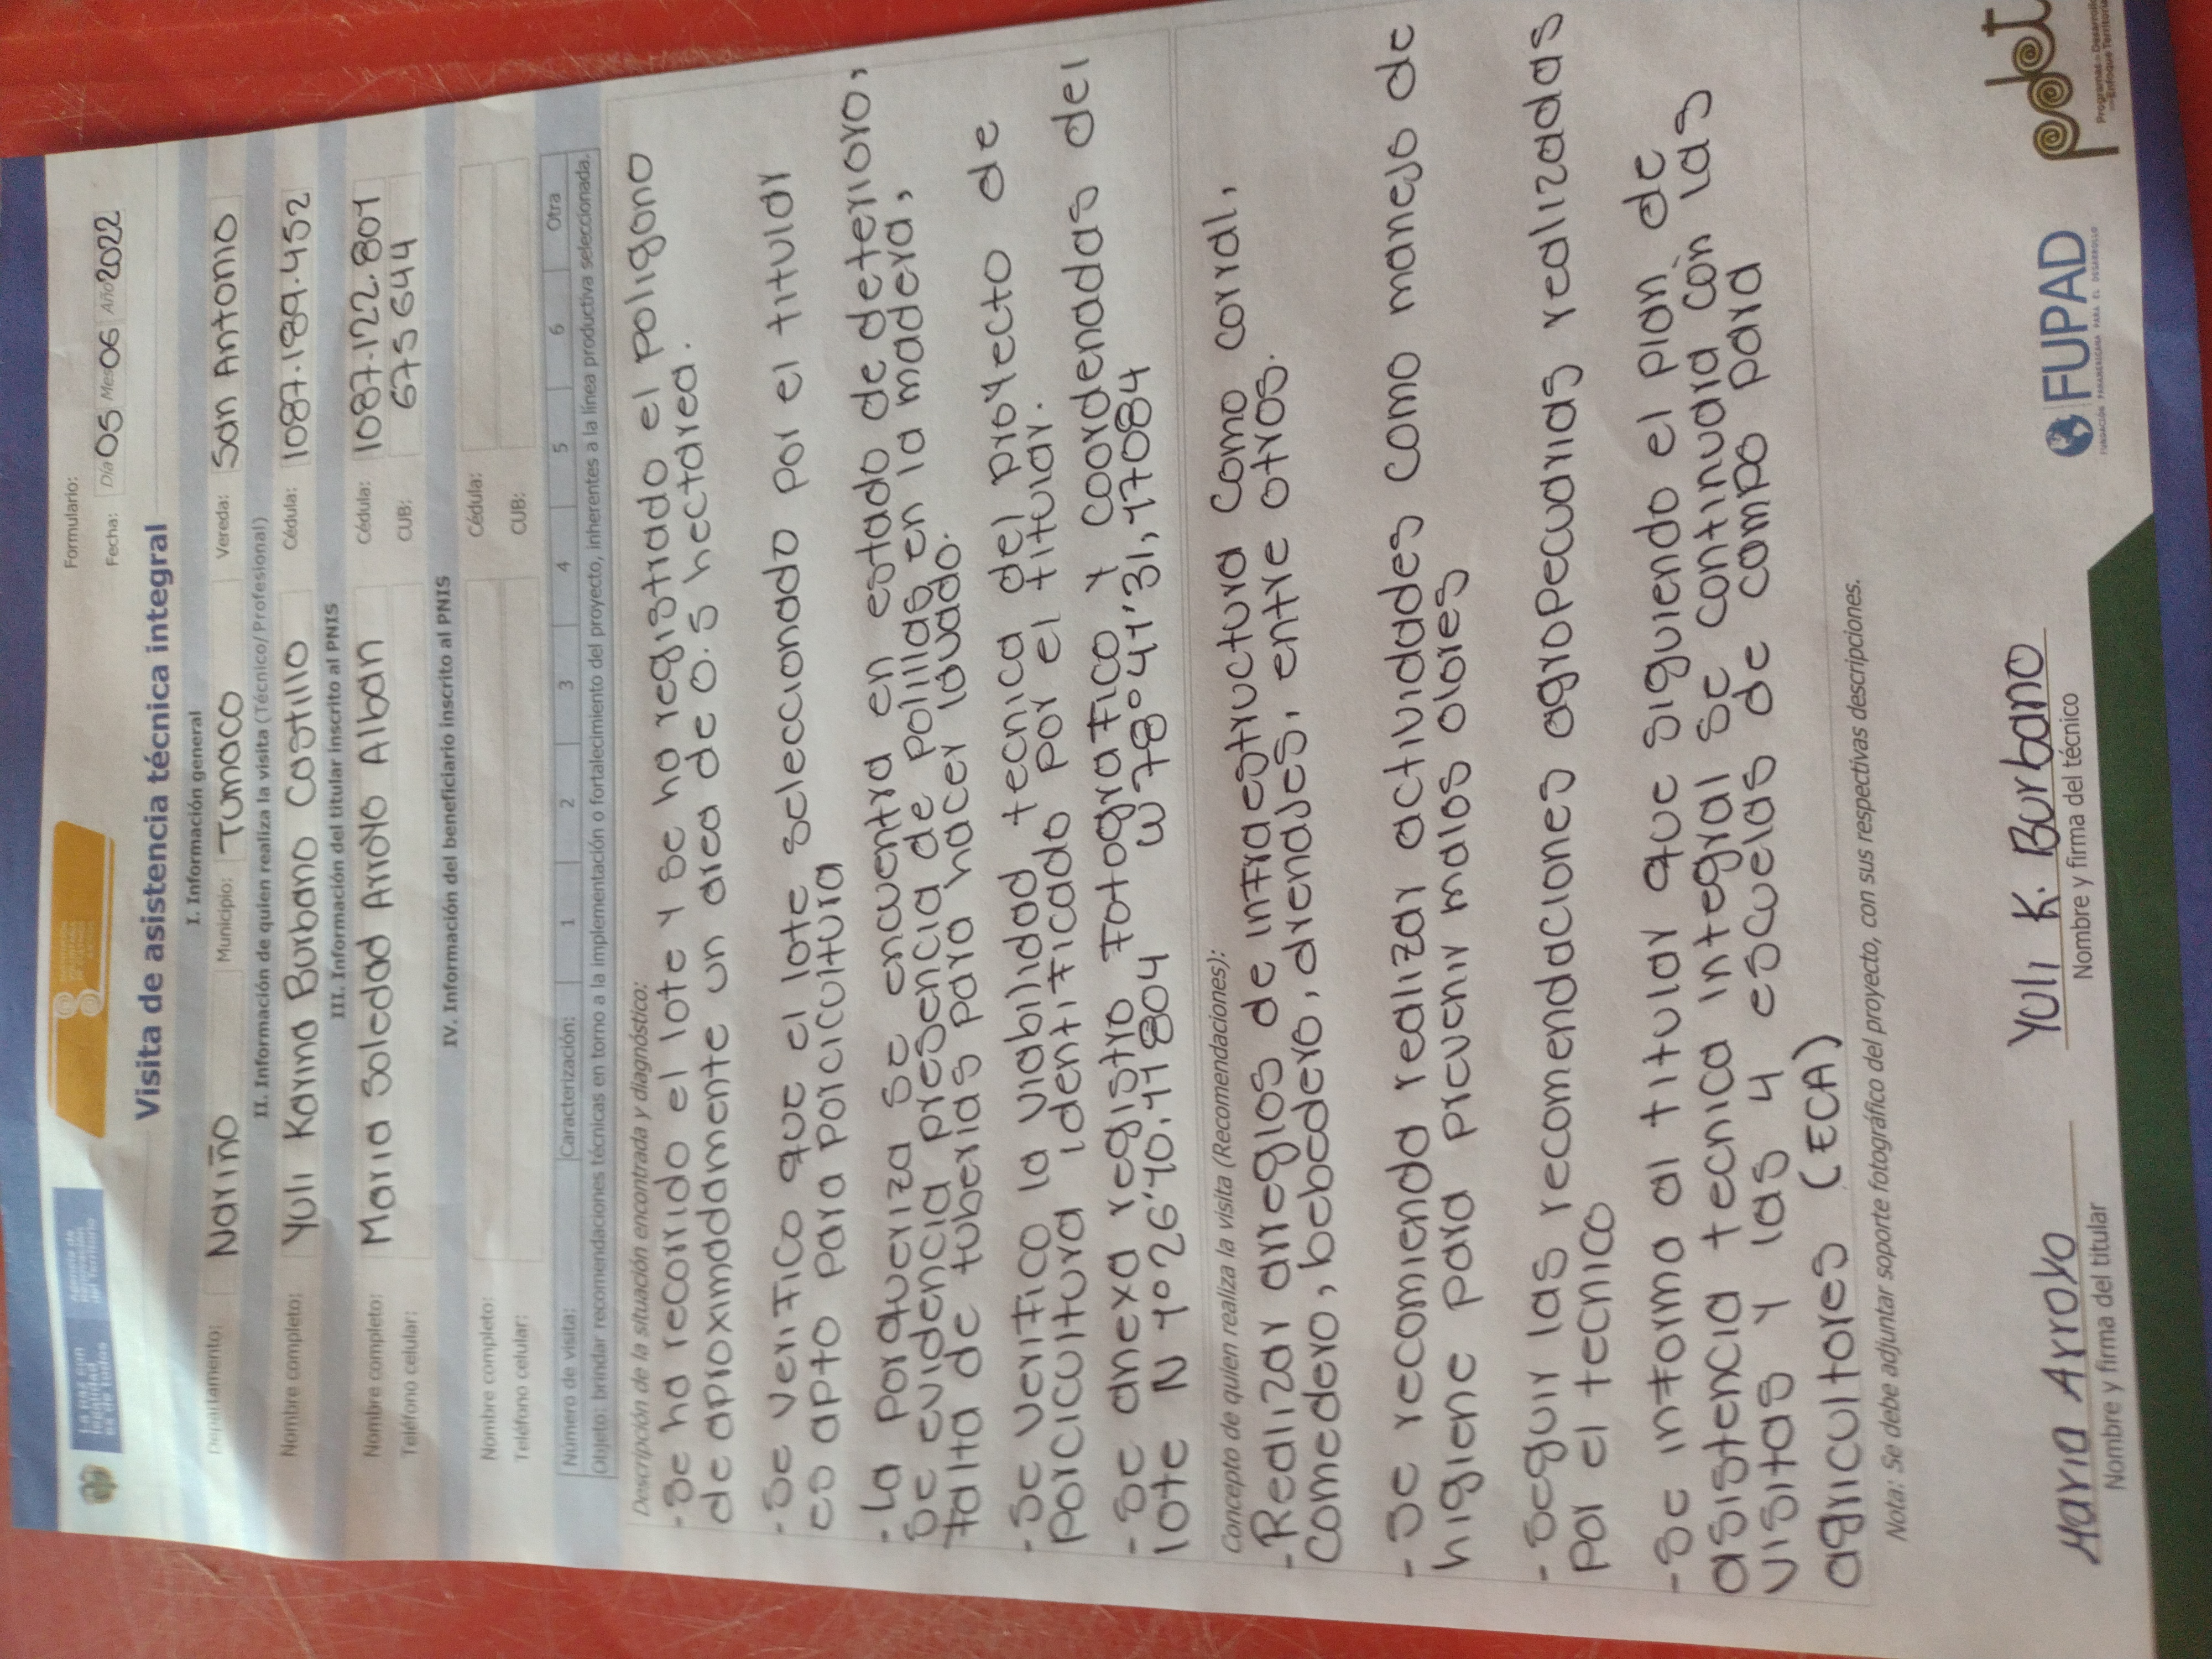 La paz con
legalidad
es de todos
Agencia de
Renovación
del Territorio
Formulario:
Fecha: Día 05 Mes 06 Año 2022
Visita de asistencia técnica integral
I. Información general
Departamento: Nariño Municipio: Tumaco Vereda: San Antonio
II. Información de quien realiza la visita (Técnico/Profesional)
Nombre completo: Yuli Karina Burbano Castillo Cédula: 1087.189.452
III. Información del titular inscrito al PNIS
Nombre completo: Maria Soledad Arroyo Alban Cédula: 1087.122.801
Teléfono celular: CUB: 675644
IV. Información del beneficiario inscrito al PNIS
Nombre completo: Cédula:
Teléfono celular: CUB:
Número de visita: Caracterización: 1 2 3 4 5 6 Otra
Objeto: brindar recomendaciones técnicas en torno a la implementación o fortalecimiento del proyecto, inherentes a la línea productiva seleccionada.
Descripción de la situación encontrada y diagnóstico:
- Se ha recorrido el lote y se ha registrado el poligono
de aproximadamente un area de 0.5 hectarea.
- Se verifico que el lote seleccionado por el titular
es apto para porcicultura
- La porqueriza se encuentra en estado de deterioro,
se evidencia presencia de polillas en la madera,
falta de tuberias para hacer lavado.
- Se verifico la viabilidad tecnica del proyecto de
porcicultura identificado por el titular.
- Se anexa registro fotografico y coordenadas del
lote N 1°26'40.41804 W 78°41'31,47084
Concepto de quien realiza la visita (Recomendaciones):
- Realizar arreglos de infraestructura como corral,
comedero, bebedero, drenajes, entre otros.
- Se recomienda realizar actividades como manejo de
higiene para prevenir malos olores
- Seguir las recomendaciones agropecuarias realizadas
por el tecnico
- Se informa al titular que siguiendo el plan de
asistencia tecnica integral se continuara con las
visitas y las 4 escuelas de campo para
agricultores (ECA)
Nota: Se debe adjuntar soporte fotográfico del proyecto, con sus respectivas descripciones.
Maria Arroyo Yuli K. Burbano
Nombre y firma del titular Nombre y firma del técnico
FUPAD
FUNDACIÓN PANAMERICANA PARA EL DESARROLLO
pdet
Programas de Desarrollo
con Enfoque Territorial